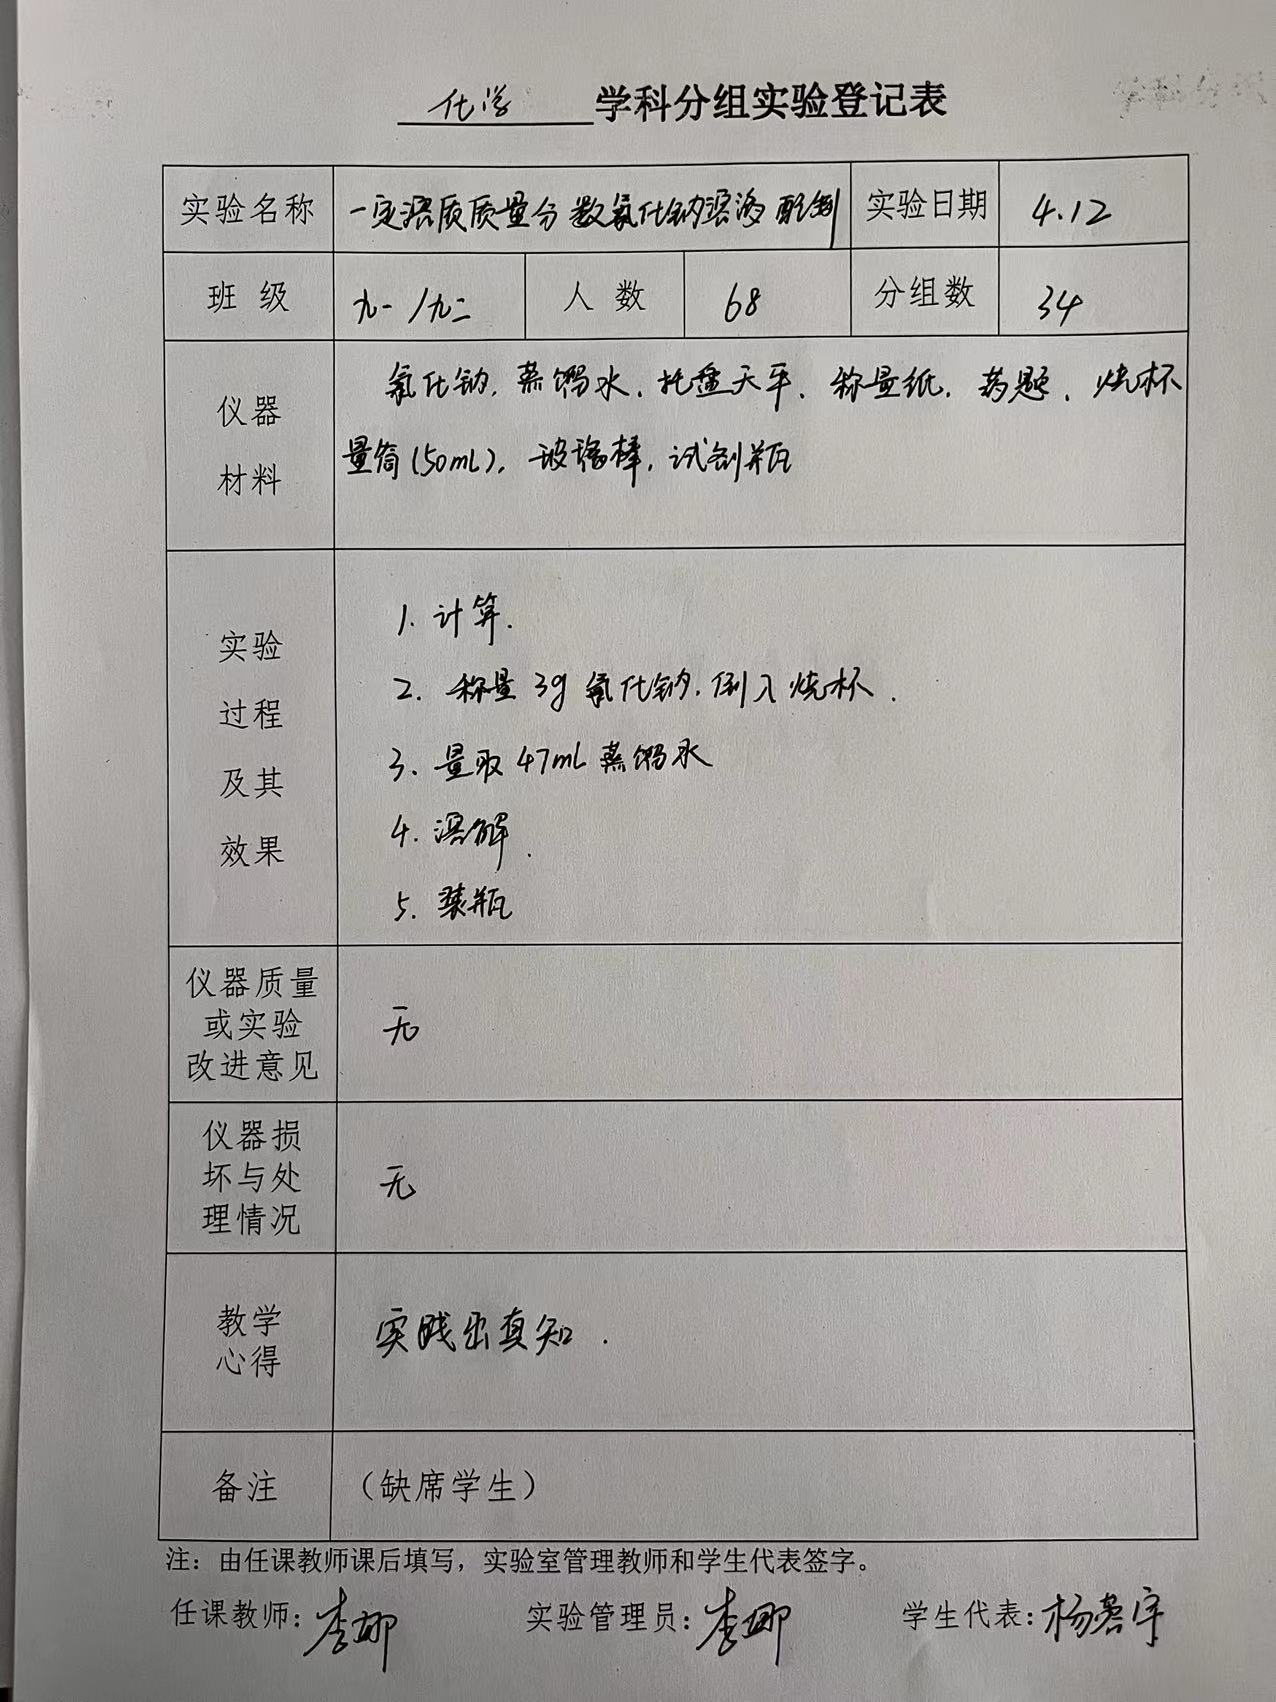 化学 学科分组实验登记表
实验名称 一定溶质质量分数氯化钠溶液配制 实验日期 4.12
班级 九一/九二 人数 68 分组数 34
仪器
材料
氯化钠, 蒸馏水、托盘天平、称量纸、药匙、烧杯
量筒(50mL), 玻璃棒, 试剂瓶
实验
过程
及其
效果
1. 计算.
2. 称量3g氯化钠, 倒入烧杯.
3. 量取47mL蒸馏水
4. 溶解.
5. 装瓶
仪器质量
或实验
改进意见
无
仪器损
坏与处
理情况
无
教学
心得
实践出真知.
备注 (缺席学生)
注:由任课教师课后填写,实验室管理教师和学生代表签字。
任课教师:李娜 实验管理员:李娜 学生代表:杨 宇